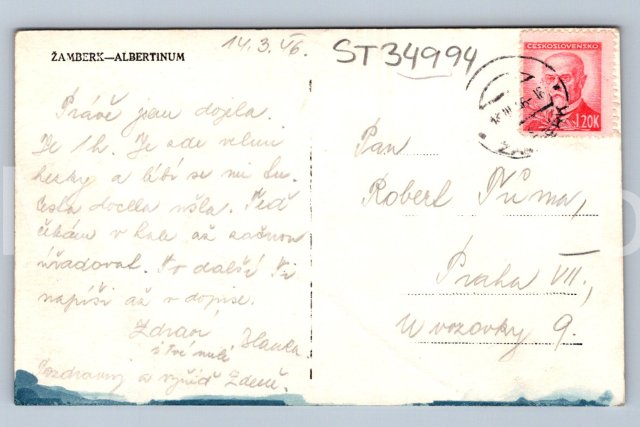 ŽAMBERK—ALBERTINUM
14.3.46.
ST34994
ČESKOSLOVENSKO
1.20K
Právě jsem dojela.
Je 1h. Je zde velmi
hezky a líbí se mi tu.
Cesta docela ušla. Teď
čekám v hale až začnou
úřadovat. To další Ti
napíši až v dopise.
Zdraví
i Tvé
Pozdravuj a vyřiď Zdeně.
Pan
Robert Tůma,
Praha VII.,
U vozovky 9.